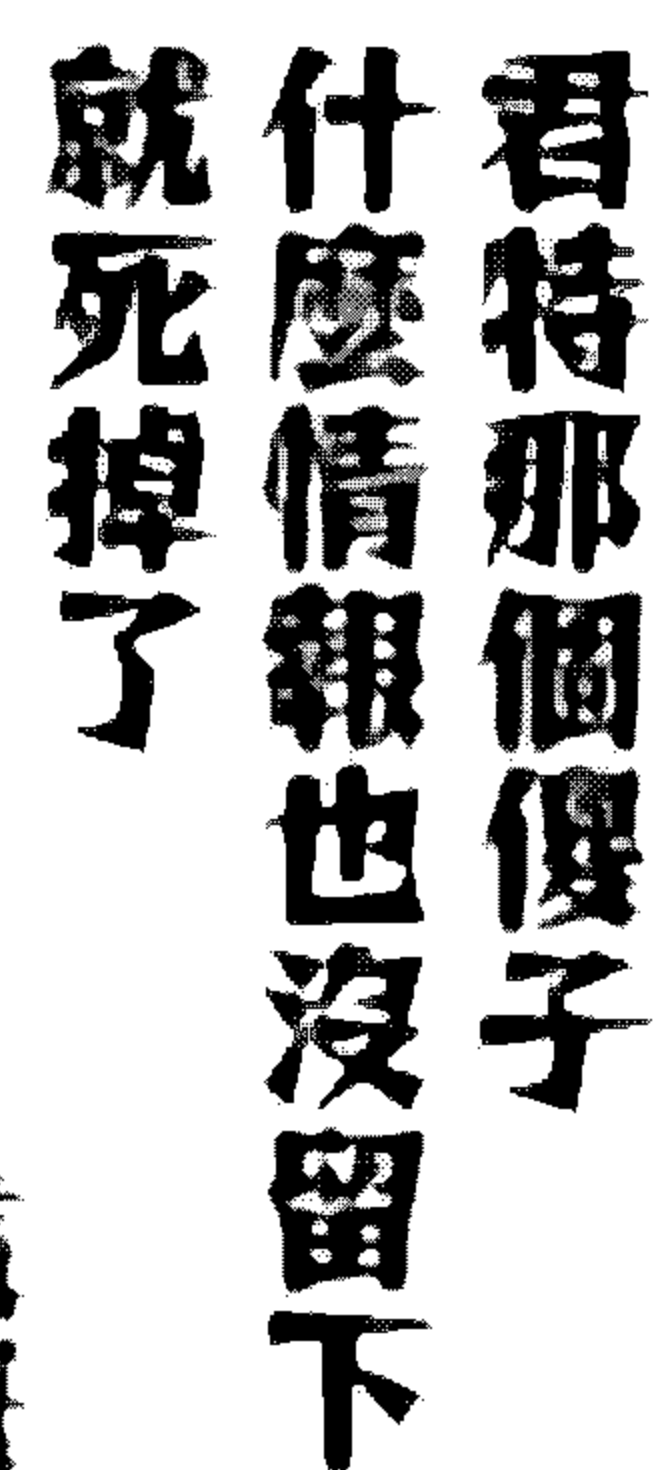 君特那個傻子
什麼情報也沒留下
就死掉了